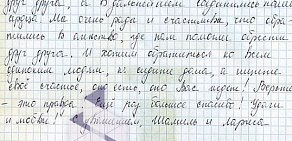 друг друга, а в дальнейшем соединились наши
сердца. Мы очень рады и счастливы, что обра-
тились в агентство, где нам помогли обрести
друг друга. И хотим обратиться ко всем
одиноким людям, не сидите дома, а ищите
своё счастье, оно есть, оно Вас ждет! Верьте
- это правда. Ещё раз большое спасибо! Удачи
и любви! С уважением, Шамиль и Лариса